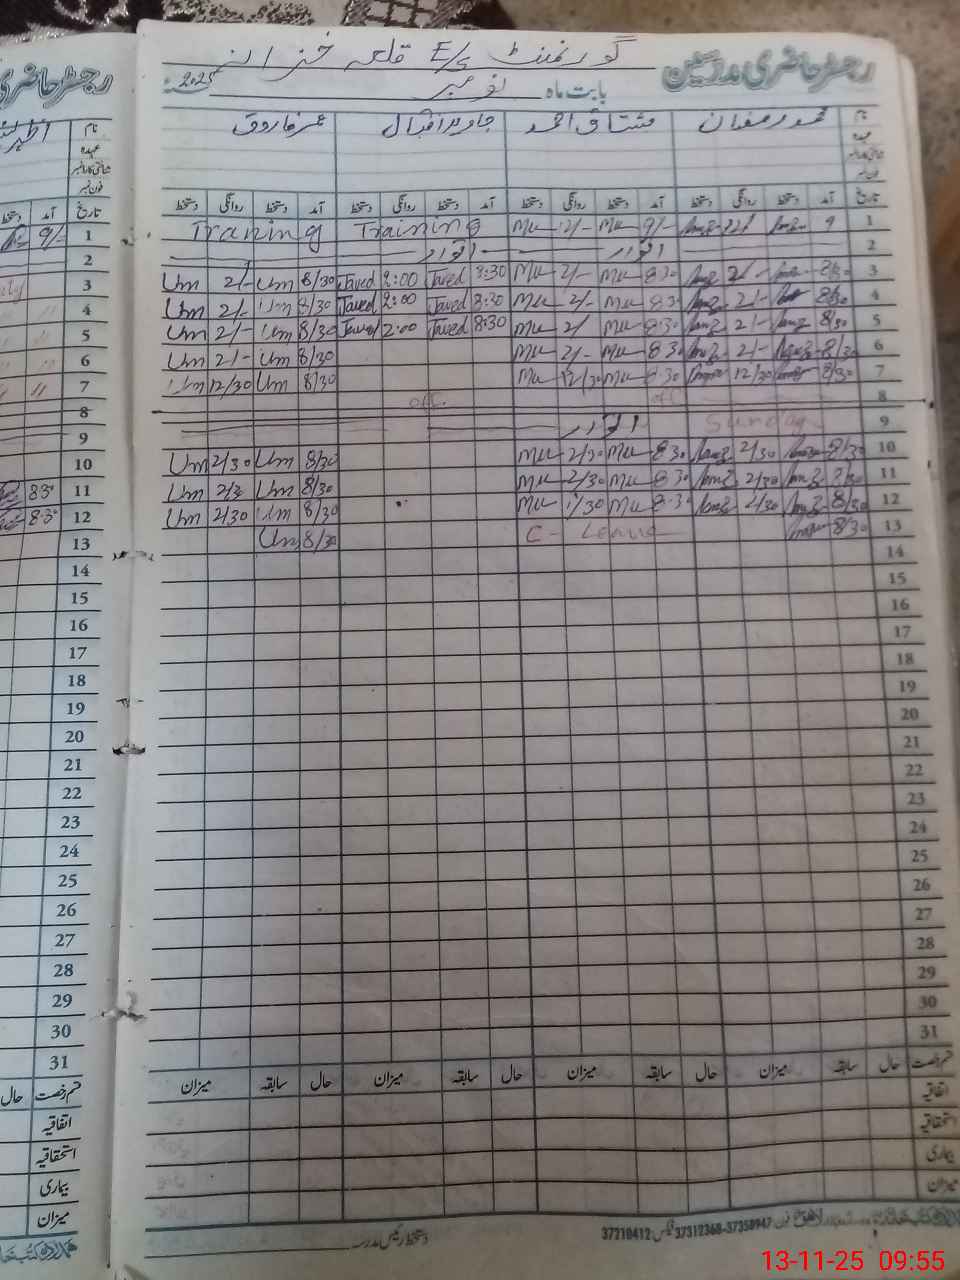 رجسٹر حاضری مدرسین گورنمنٹ E/S قلعہ
بابت ماہ نومبر 2025
نام محمد رمضان مشتاق احمد جاوید اقبال عمر فاروق
عہدہ
شناختی کارڈ نمبر
فون نمبر
تاریخ آمد دستخط روانگی دستخط آمد دستخط روانگی دستخط آمد دستخط روانگی دستخط آمد دستخط روانگی دستخط
1 9 9/- Mu 12/- Mu Training Training
2 اتوار اتوار
3 8/30 2/- 8:30 Mu 2/- Mu 8:30 Javed 2:00 Javed 8/30 Um 2/- Um
4 8/30 2/- 8:30 Mu 2/- Mu 8:30 Javed 2:00 Javed 8/30 Um 2/- Um
5 8/30 2/- 8:30 Mu 2/ Mu 8:30 Javed 2:00 Javed 8/30 Um 2/- Um
6 8/30 2/- 8:30 Mu 2/- Mu 8/30 Um 2/- Um
7 8/30 12/30 8:30 Mu 12/30 Mu 8/30 Um 12/30 Um
8 off off
9 Sunday اتوار
10 8/30 2/30 8:30 Mu 2/30 Mu 8/30 Um 2/30 Um
11 8/30 2/30 8:30 Mu 2/30 Mu 8/30 Um 2/3 Um
12 8/30 2/30 8:30 Mu 1/30 Mu 8/30 Um 2/30 Um
13 8/30 C - Leave 8/30 Um
14
15
16
17
18
19
20
21
22
23
24
25
26
27
28
29
30
31
قسم رخصت حال سابقہ میزان حال سابقہ میزان حال سابقہ میزان حال سابقہ میزان
اتفاقیہ
استحقاقیہ
بیماری
میزان
دستخط رئیس مدرسہ
37210412 فیکس 37312368-37350947 فون
رجسٹر حاضری
نام
عہدہ
شناختی کارڈ نمبر
فون نمبر
تاریخ آمد دستخط
1 9/-
2
3
4
5
6
7
8
9
10
11 8:30
12 8:30
13
14
15
16
17
18
19
20
21
22
23
24
25
26
27
28
29
30
31
قسم رخصت حال
اتفاقیہ
استحقاقیہ
بیماری
میزان
13-11-25 09:55